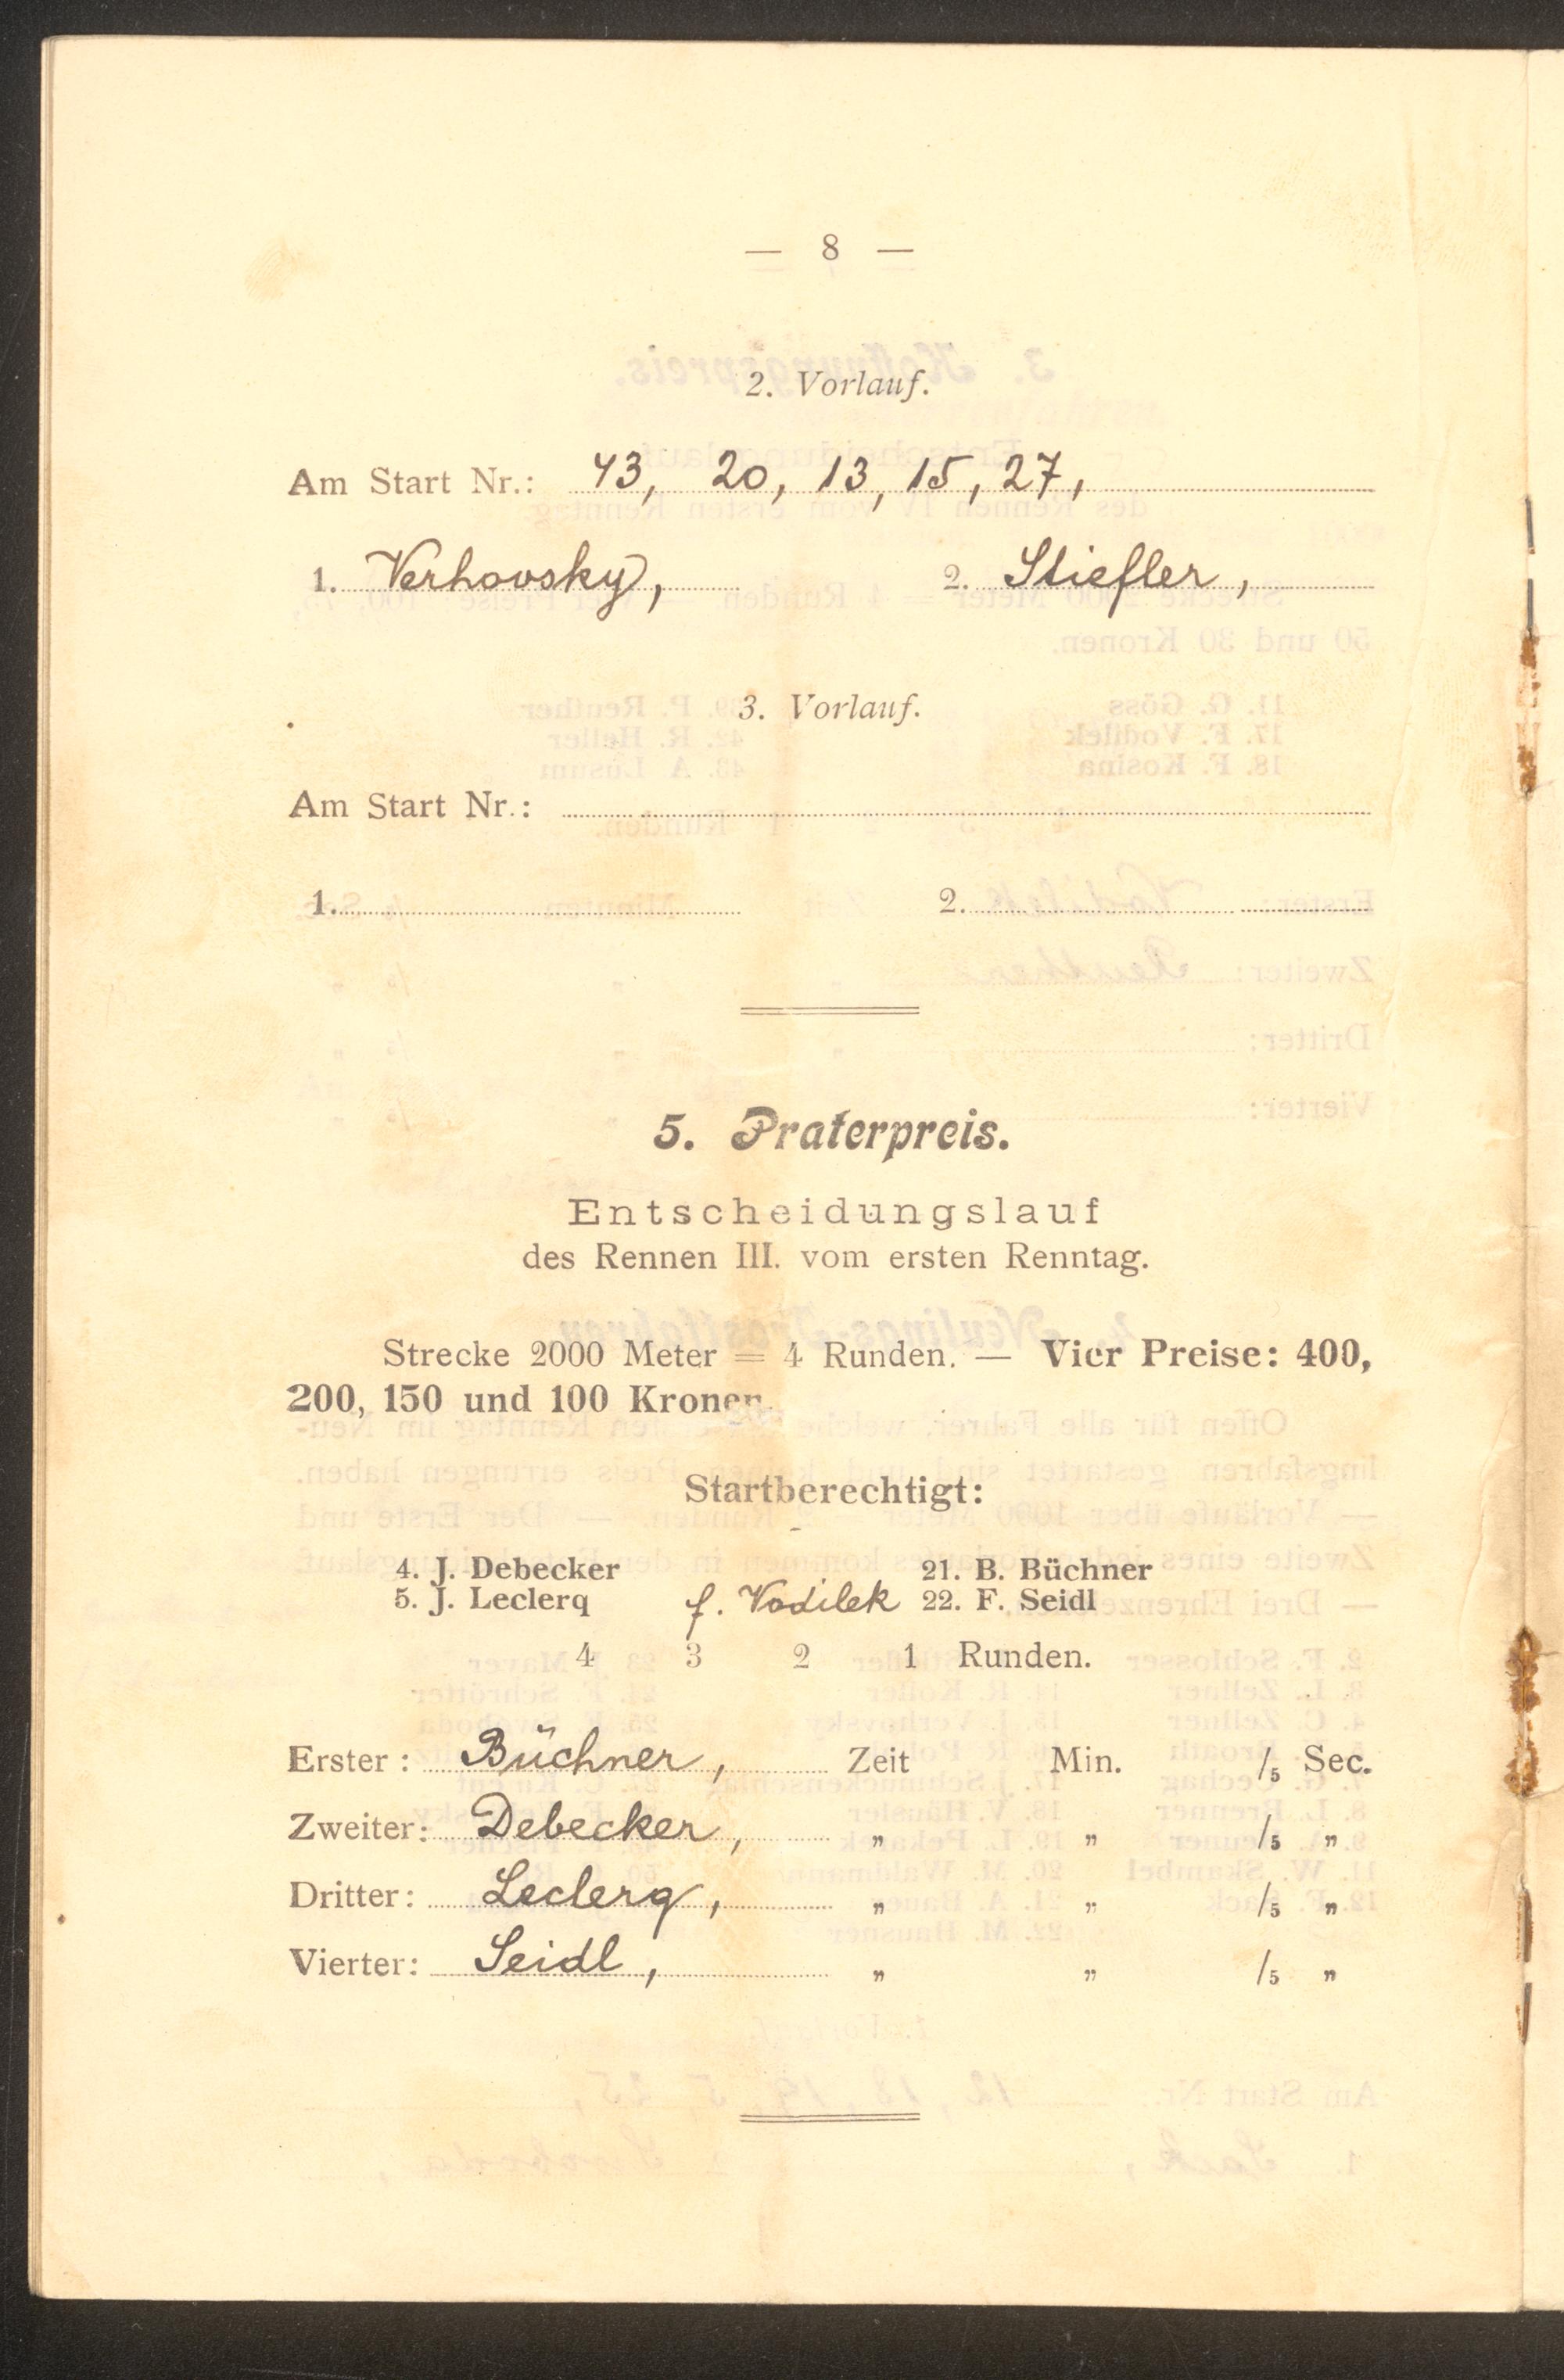 — 8 —
2. Vorlauf.
Am Start Nr.: 43, 20, 13, 15, 27,
1. Verhovsky, 2. Stiefler,
3. Vorlauf.
Am Start Nr.:
1. 2.
5. Praterpreis.
Entscheidungslauf
des Rennen III. vom ersten Renntag.
Strecke 2000 Meter = 4 Runden. — Vier Preise: 400,
200, 150 und 100 Kronen.
Startberechtigt:
4. J. Debecker 21. B. Büchner
5. J. Leclerq f. Vodilek 22. F. Seidl
4 3 2 1 Runden.
Erster: Büchner, Zeit Min. /5 Sec.
Zweiter: Debecker, „ „ /5 „
Dritter: Leclerq, „ „ /5 „
Vierter: Seidl, „ „ /5 „